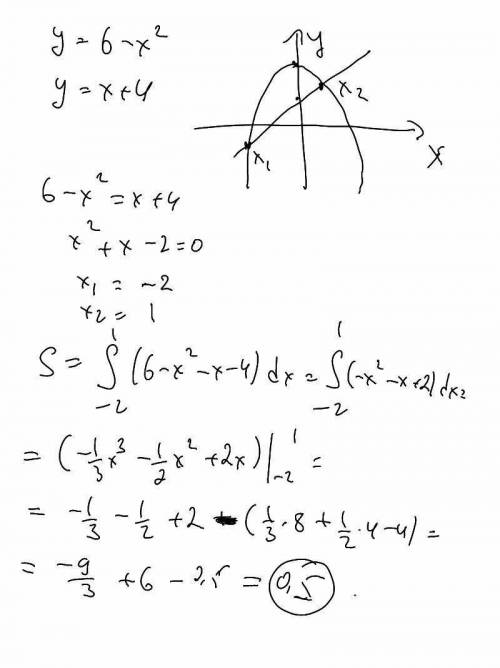 y = 6 - x²
y = x + 4
y
x₂
x₁
x
6 - x² = x + 4
x² + x - 2 = 0
x₁ = -2
x₂ = 1
S = ∫₋₂¹ (6 - x² - x - 4) dx = ∫₋₂¹ (-x² - x + 2) dx =
= (-1/3 x³ - 1/2 x² + 2x) |₋₂¹ =
= -1/3 - 1/2 + 2 - (1/3 · 8 + 1/2 · 4 - 4) =
= -9/3 + 6 - 0,5 = 0,5.